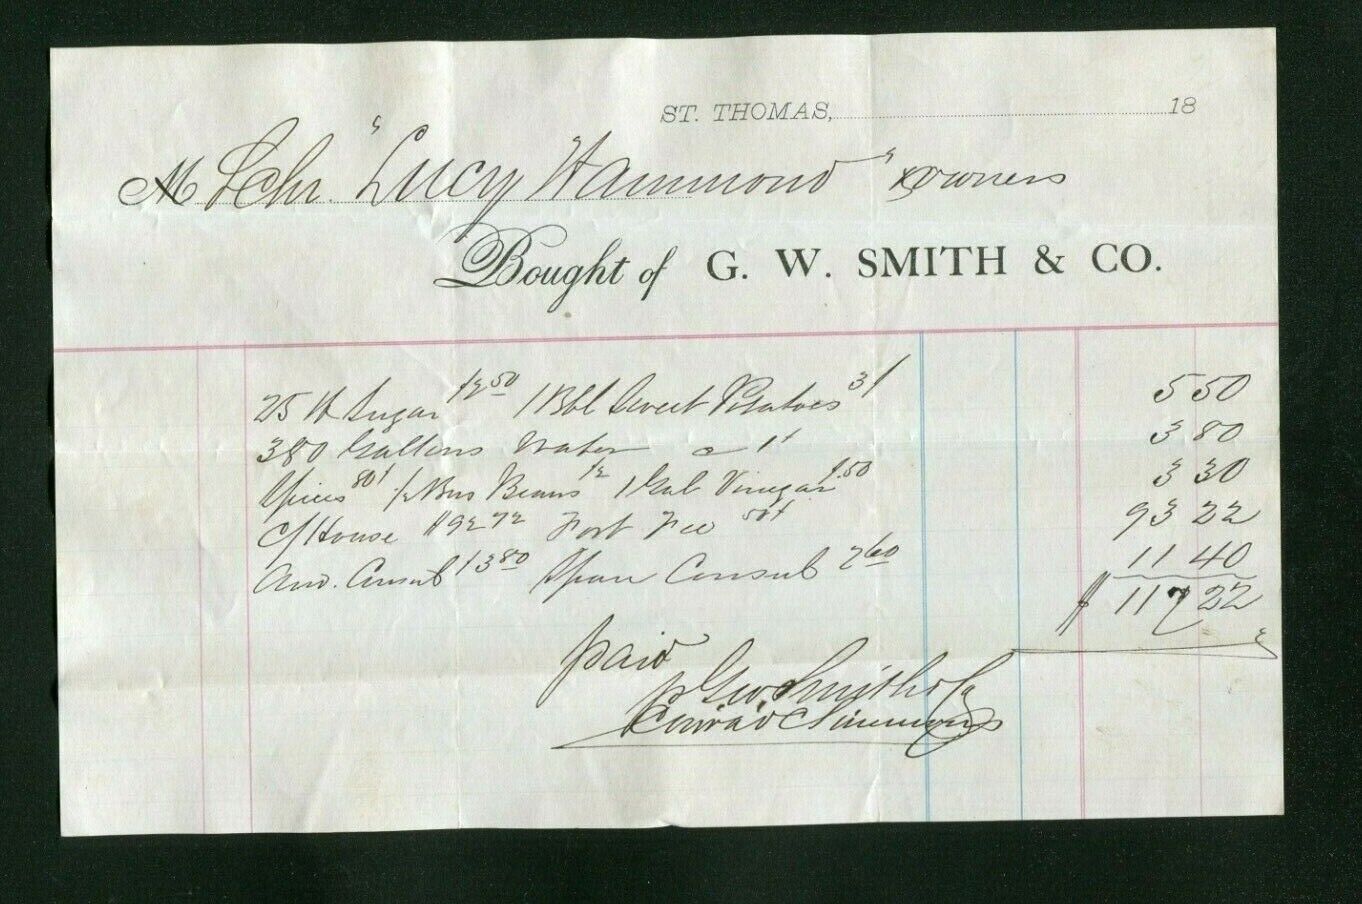 ST. THOMAS, 18
M Schr. "Lucy Hammond" & owners
Bought of G. W. SMITH & CO.
25 # Sugar $2.50 1 Bbl Sweet Potatoes 3$ 5 50
380 Gallons Water @ 1¢ 3 80
Spices 80¢ ½ Bus Beans $2 1 Gal Vinegar $.50 3 30
C/House $92.72 Fort Fee 50¢ 93 22
Am. Consul $3.80 Span Consul 7.60 11 40
$ 117 22
paid
p Geo Smith & Co
Conrad Simmons